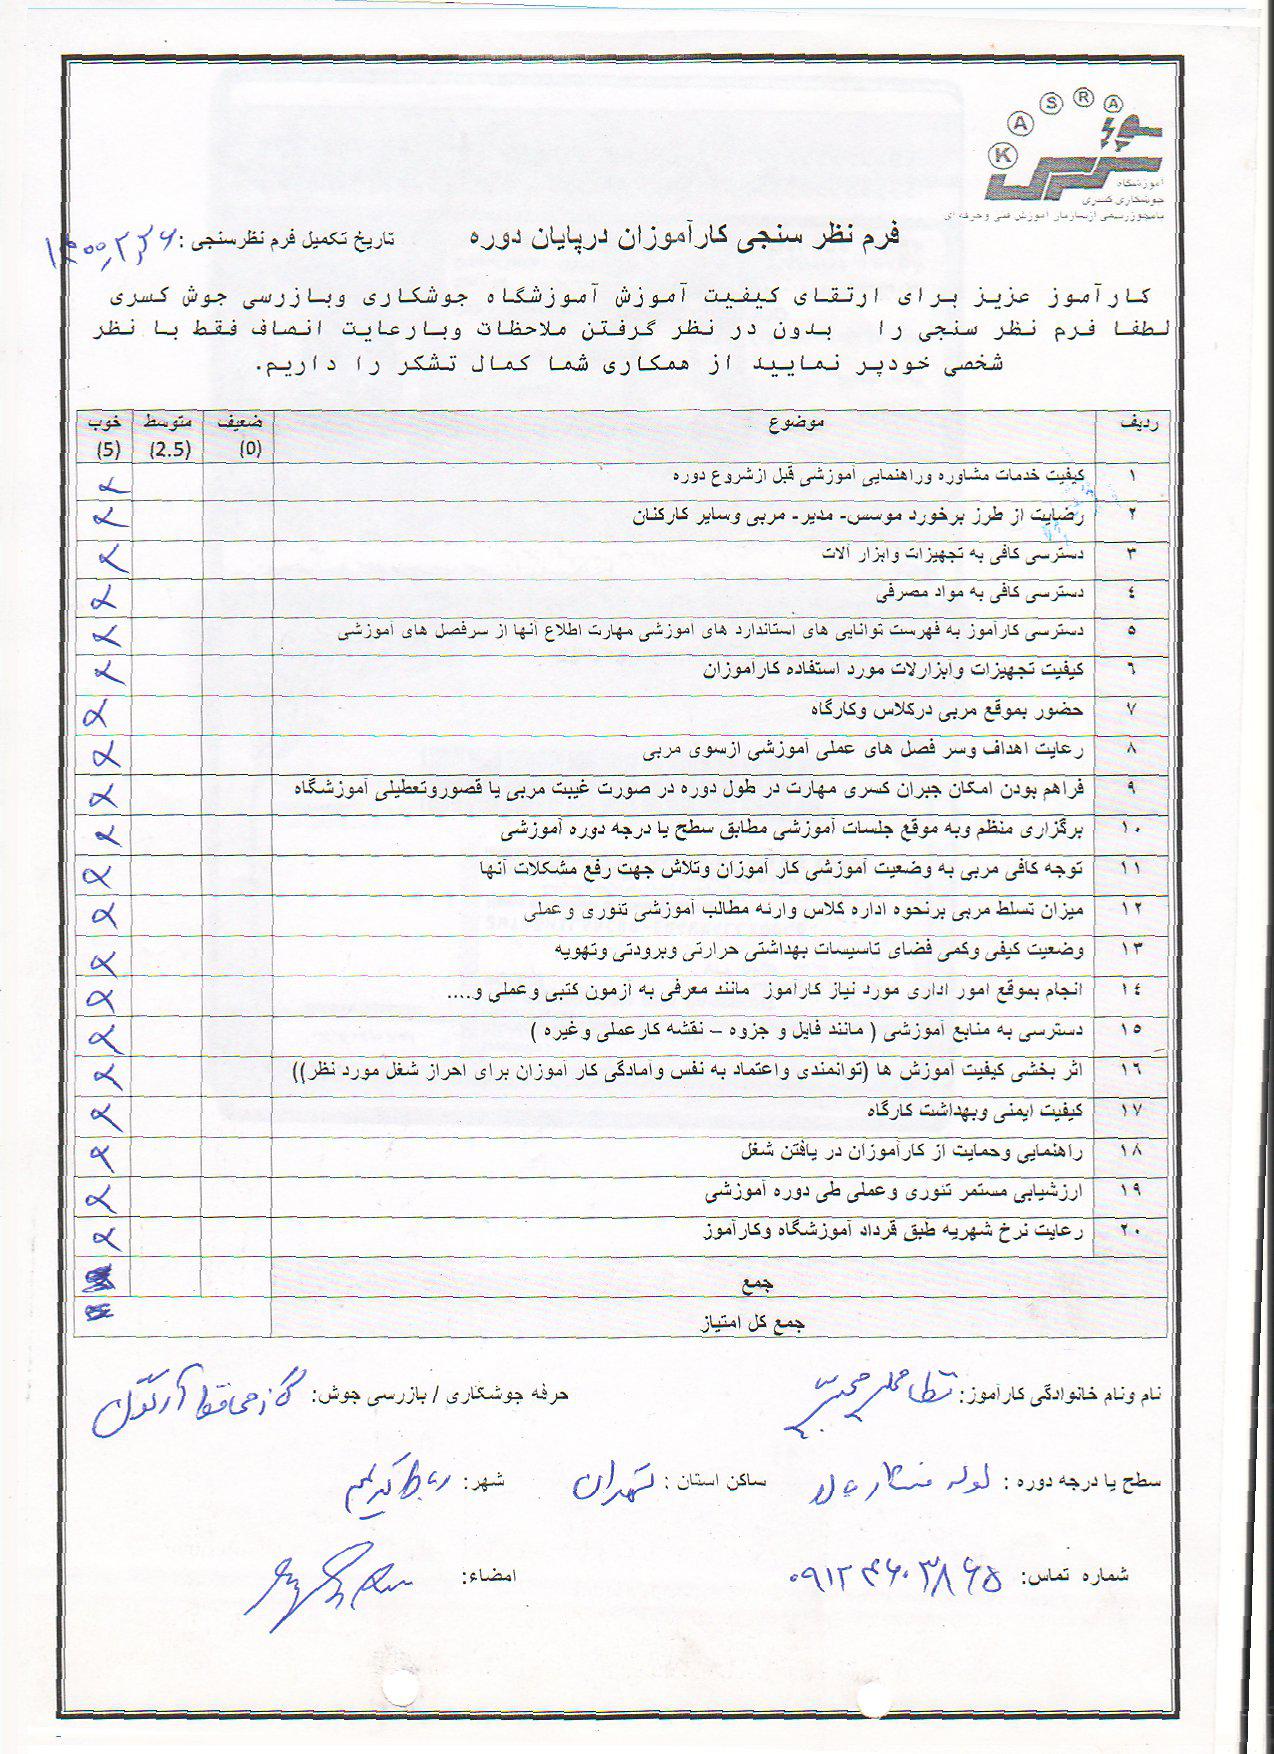 KASRA
آموزشگاه
جوشکاری کسری
بامجوز رسمی از سازمان آموزش فنی وحرفه ای
فرم نظر سنجی کارآموزان درپایان دوره
تاریخ تکمیل فرم نظرسنجی :
کارآموز عزیز برای ارتقای کیفیت آموزش آموزشگاه جوشکاری وبازرسی جوش کسری
لطفا فرم نظر سنجی را بدون در نظر گرفتن ملاحظات وبارعایت انصاف فقط با نظر
شخصی خودپر نمایید از همکاری شما کمال تشکر را داریم.
ردیف موضوع ضعیف (0) متوسط (2.5) خوب (5)
۱ کیفیت خدمات مشاوره وراهنمایی آموزشی قبل ازشروع دوره
۲ رضایت از طرز برخورد موسس- مدیر- مربی وسایر کارکنان
۳ دسترسی کافی به تجهیزات وابزار آلات
٤ دسترسی کافی به مواد مصرفی
٥ دسترسی کارآموز به فهرست توانایی های استاندارد های آموزشی مهارت اطلاع آنها از سرفصل های آموزشی
٦ کیفیت تجهیزات وابزارلات مورد استفاده کارآموزان
۷ حضور بموقع مربی درکلاس وکارگاه
۸ رعایت اهداف وسر فصل های عملی آموزشی ازسوی مربی
۹ فراهم بودن امکان جبران کسری مهارت در طول دوره در صورت غیبت مربی یا قصوروتعطیلی آموزشگاه
۱۰ برگزاری منظم وبه موقع جلسات آموزشی مطابق سطح یا درجه دوره آموزشی
۱۱ توجه کافی مربی به وضعیت آموزشی کار آموزان وتلاش جهت رفع مشکلات آنها
۱۲ میزان تسلط مربی برنحوه اداره کلاس وارئه مطالب آموزشی تئوری وعملی
۱۳ وضعیت کیفی وکمی فضای تاسیسات بهداشتی حرارتی وبرودتی وتهویه
۱٤ انجام بموقع امور اداری مورد نیاز کارآموز مانند معرفی به ازمون کتبی وعملی و....
۱٥ دسترسی به منابع آموزشی ( مانند فایل و جزوه – نقشه کارعملی وغیره )
۱٦ اثر بخشی کیفیت آموزش ها (توانمندی واعتماد به نفس وآمادگی کار آموزان برای احراز شغل مورد نظر))
۱۷ کیفیت ایمنی وبهداشت کارگاه
۱۸ راهنمایی وحمایت از کارآموزان در یافتن شغل
۱۹ ارزشیابی مستمر تئوری وعملی طی دوره آموزشی
۲۰ رعایت نرخ شهریه طبق قرداد آموزشگاه وکارآموز
جمع
جمع کل امتیاز
نام ونام خانوادگی کارآموز: حرفه جوشکاری / بازرسی جوش: گاز محافظ آرگون
سطح یا درجه دوره : لوله ساکن استان : تهران شهر: رباط کریم
شماره تماس: ۰۹۱۲۴۶۰۳۸۶۵ امضاء: